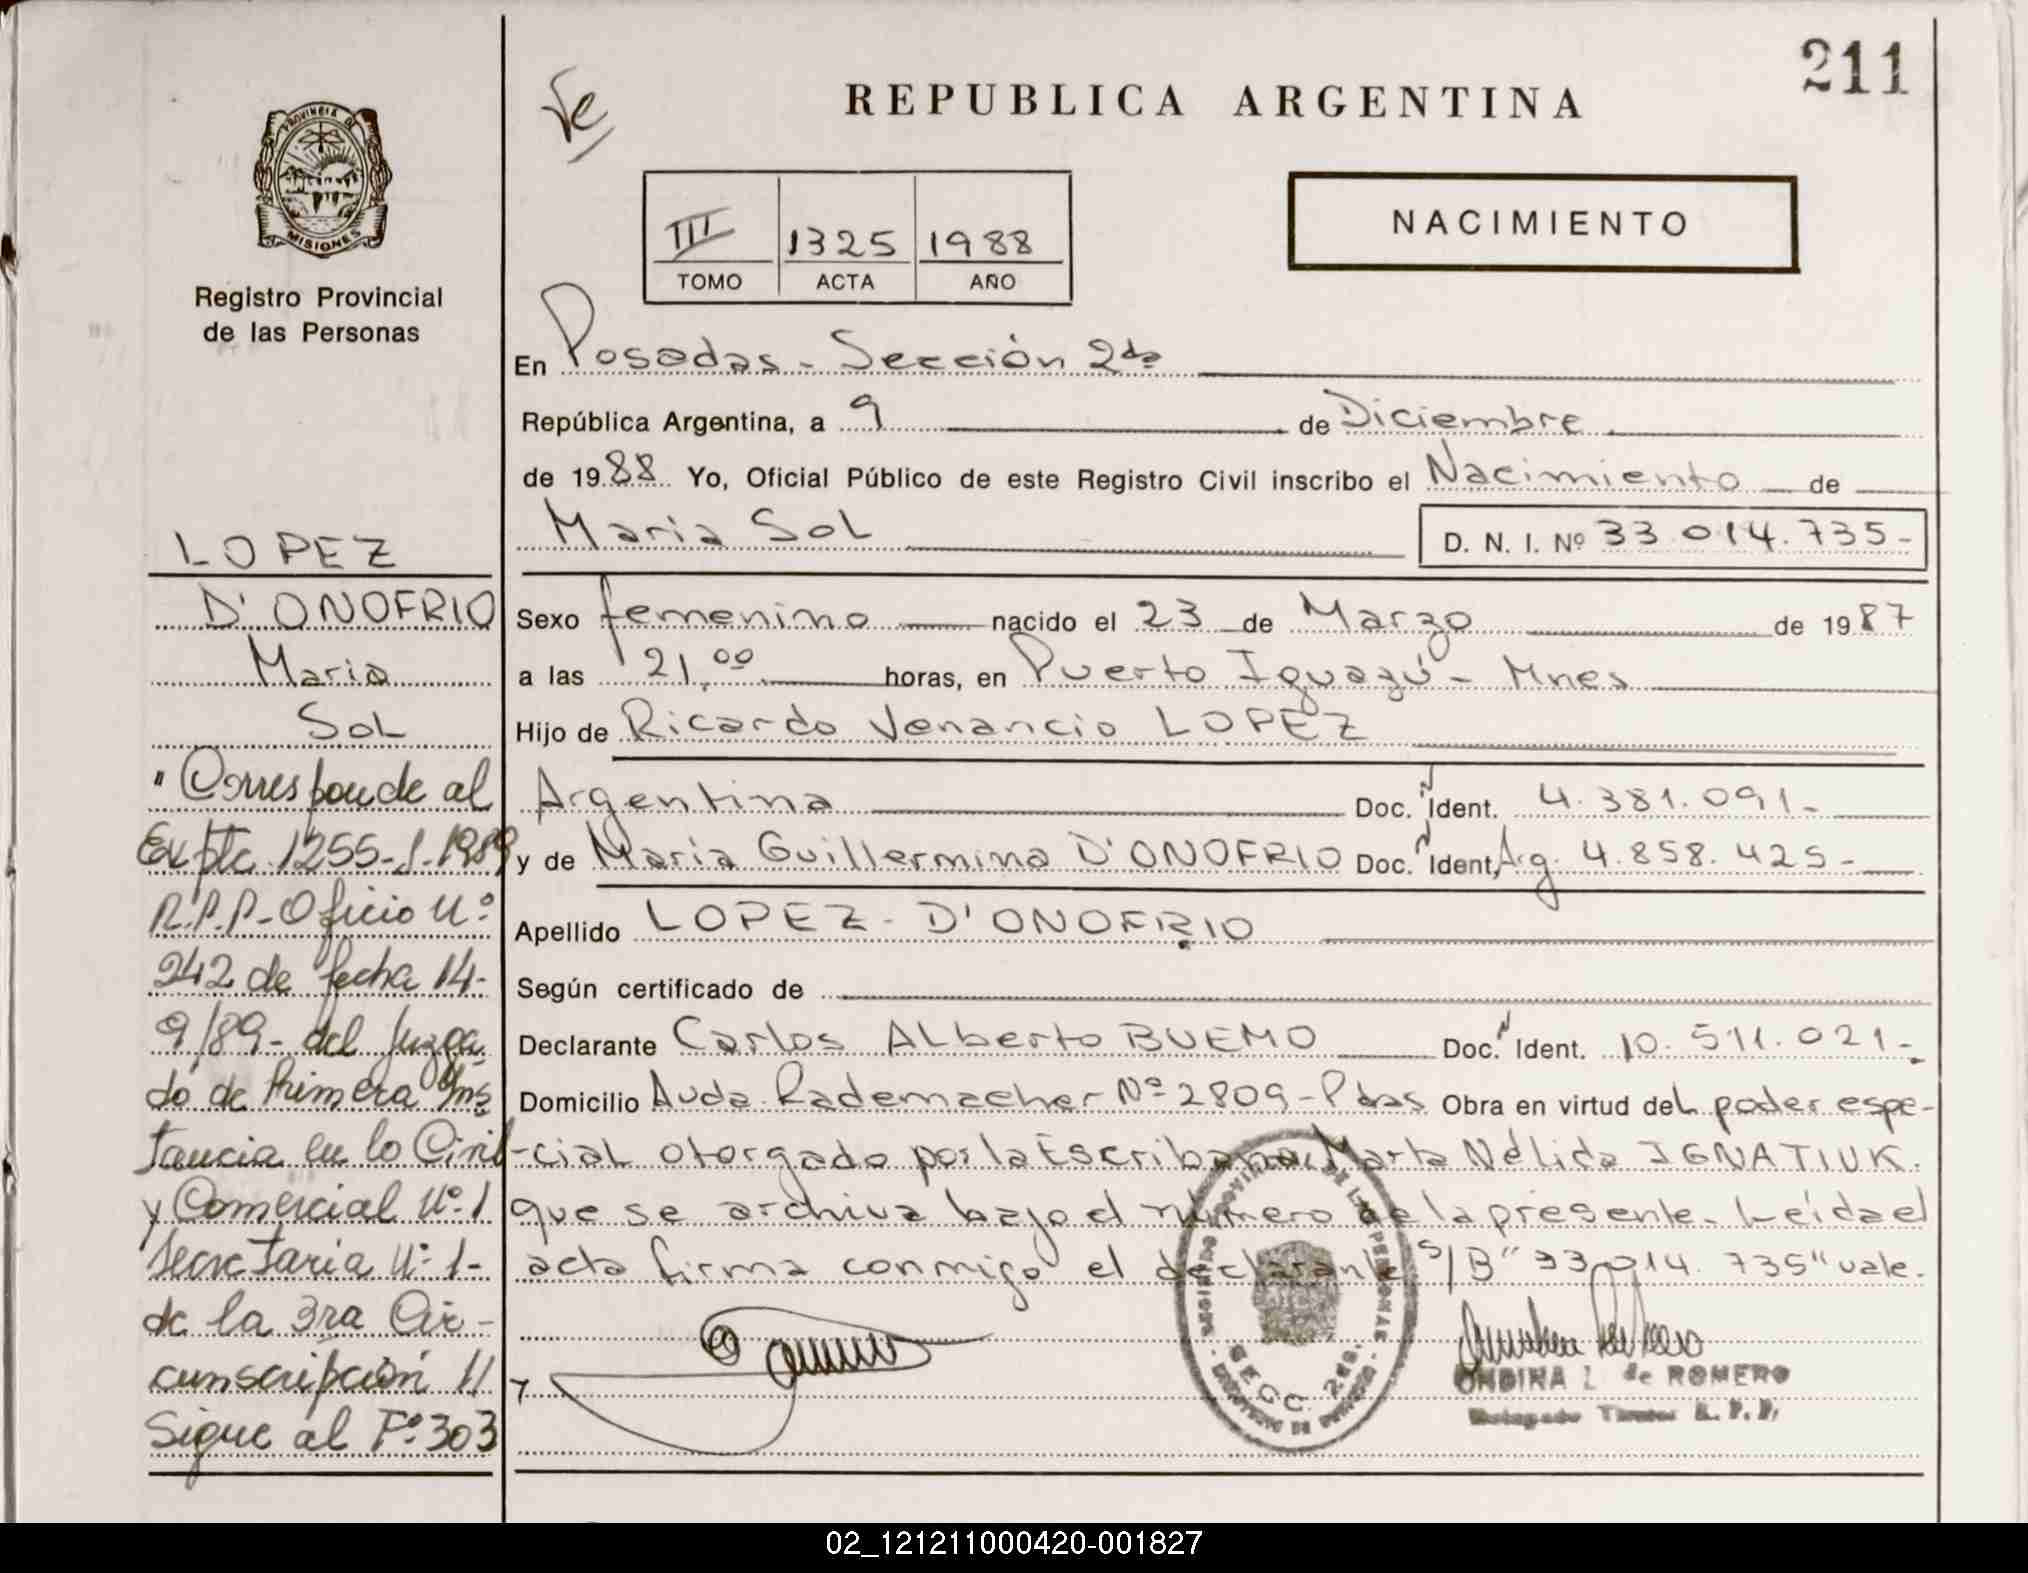 211
REPUBLICA ARGENTINA
PROVINCIA DE
MISIONES
Registro Provincial
de las Personas
III 1325 1988
TOMO ACTA AÑO
NACIMIENTO
En Posadas - Sección 2da
República Argentina, a 9 de Diciembre
de 1988 Yo, Oficial Público de este Registro Civil inscribo el Nacimiento de
Maria Sol D. N. I. Nº 33.014.735-
Sexo femenino nacido el 23 de Marzo de 1987
a las 21,00 horas, en Puerto Iguazú - Mnes
Hijo de Ricardo Venancio LOPEZ
Argentina Doc. Ident. 4.381.091-
y de Maria Guillermina D'ONOFRIO Doc. Ident. Arg. 4.858.425-
Apellido LOPEZ - D'ONOFRIO
Según certificado de
Declarante Carlos Alberto BUEMO Doc. Ident. 10.511.021-
Domicilio Avda Rademacher Nº 2809 - Pdas Obra en virtud del poder espe-
-cial otorgado por la Escribana Marta Nélida IGNATIUK.
que se archiva bajo el número de la presente. Leída el
acta firma conmigo el declarante S/B "33.014.735" vale.
LOPEZ
D'ONOFRIO
Maria
Sol
"Corresponde al
Expte 1255-J-1989
R.P.P- Oficio Nº
242 de fecha 14-
9/89- del Juzga
do de Primera Ins
tancia en lo Civil
y Comercial Nº 1
Secretaria Nº 1-
de la 3ra Cir-
cunscripción //
Sigue al Fº 303
SECC. 2da.
ONDINA L. de ROMERO
R. P. P.
02_121211000420-001827